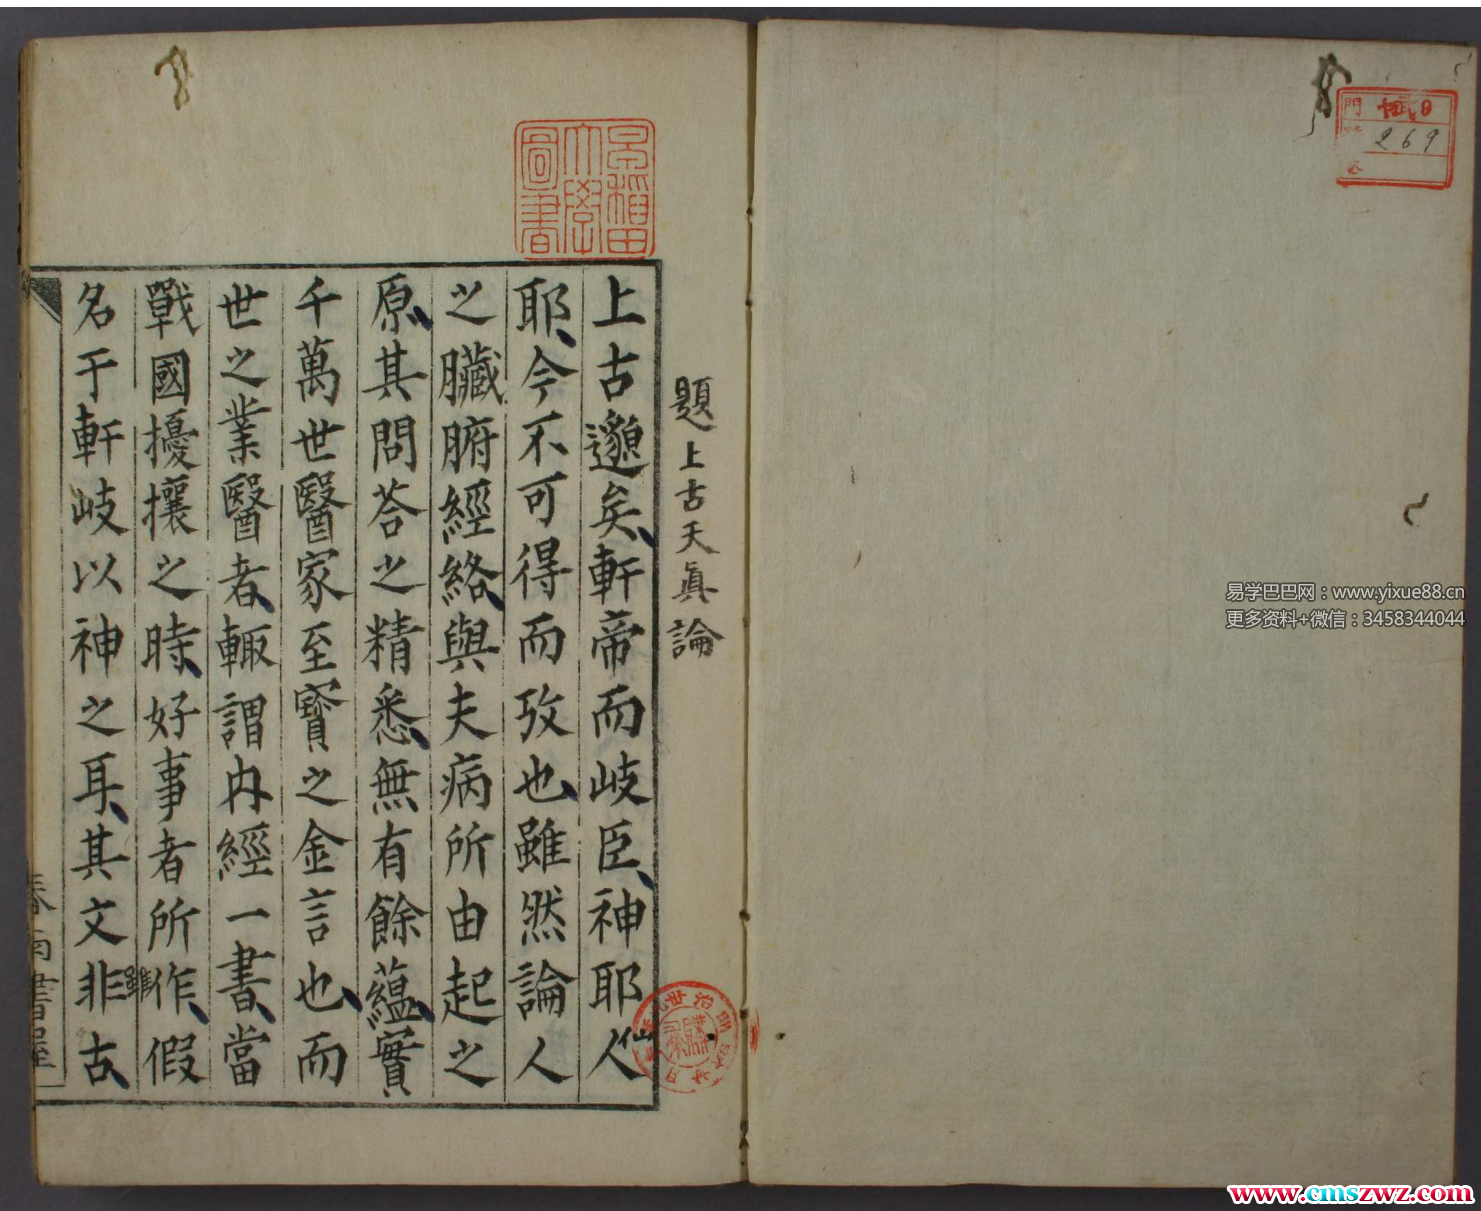 題上古天眞論
上古邈矣軒帝而岐臣神耶人
仙
耶今不可得而攷也雖然論人
之臟腑經絡與夫病所由起之
原其問荅之精悉無有餘蘊實
千萬世醫家至寳之金言也而
世之業醫者輙謂內經一書當
戰國擾攘之時好事者所作假
名于軒岐以神之耳其文非古
雖
春南書屋
早稲田
大學
圖書
門
269
易学巴巴网：www.yixue88.cn
更多资料+微信：3458344044
www.cmszwz.com